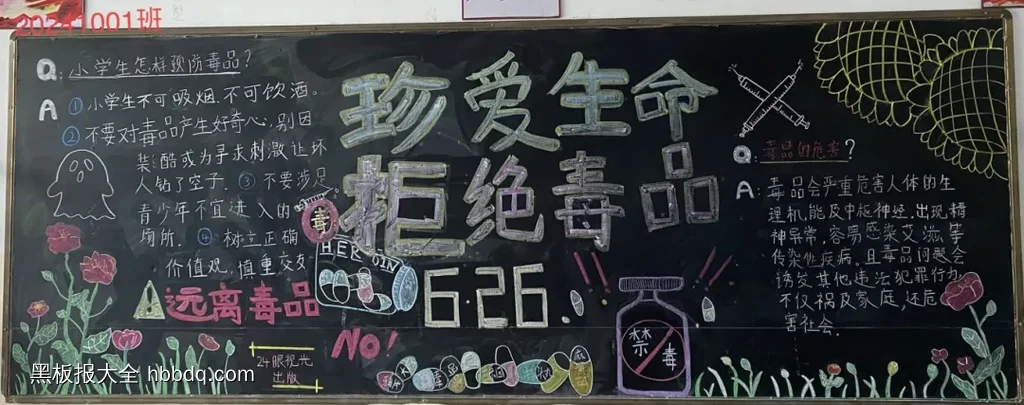 20241001班
Q: 小学生怎样预防毒品?
A ①小学生不可吸烟、不可饮酒。
②不要对毒品产生好奇心,别因
装酷或为寻求刺激让坏
人钻了空子。③不要涉足
青少年不宜进入的
场所。④树立正确
价值观,慎重交友
远离毒品
24眼视光
出版
珍爱生命
拒绝毒品
6·26
毒
HEROIN
NO!
禁毒
Q: 毒品的危害?
A: 毒品会严重危害人体的生
理机能及中枢神经,出现精
神异常,容易感染艾滋等
传染性疾病,且毒品问题会
诱发其他违法犯罪行为
不仅祸及家庭,还危
害社会。
黑板报大全 hbbdq.com